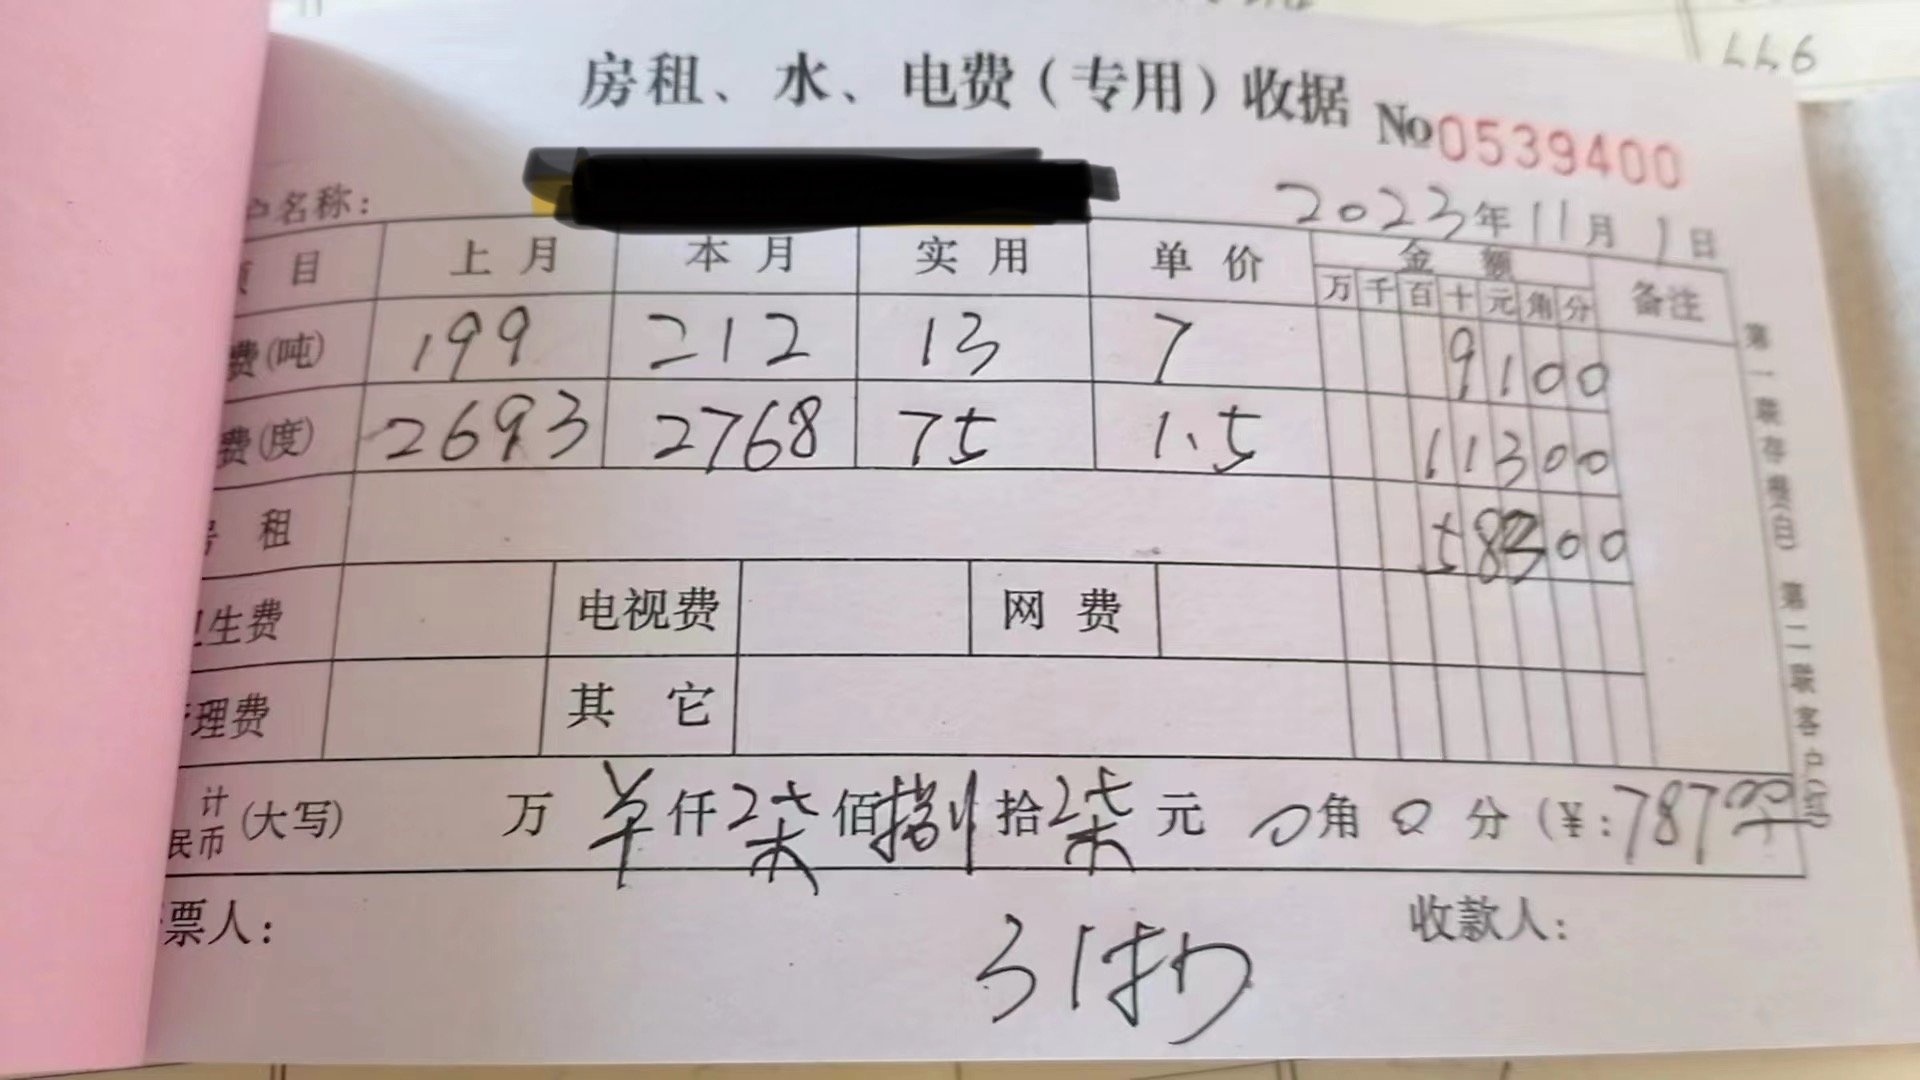 666
房租、水、电费(专用)收据 No0539400
户名称: 2023年11月1日
项目 上月 本月 实用 单价 金额 备注
万 千 百 十 元 角 分
费(吨) 199 212 13 7 9100
费(度) 2693 2768 75 1.5 11300
租 58300
卫生费 电视费 网费
管理费 其它
计 民币 (大写) 万 仟 柒 佰 捌 拾 柒 元 0角 0分 (¥:78700
票人: 31抄 收款人:
第一联存根(白) 第二联客户(红)